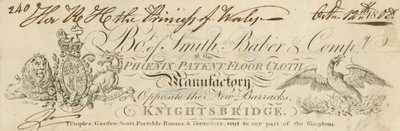 240 Her R H the Princess of Wales Octr. 12th 1808
Bot. of Smith, Baber & Compy.
at the
PHOENIX PATENT FLOOR CLOTH
Manufactory
Opposite the New Barracks,
KNIGHTSBRIDGE.
Temples, Garden Seats, Portable Rooms & Verandas, sent to any part of the Kingdom.